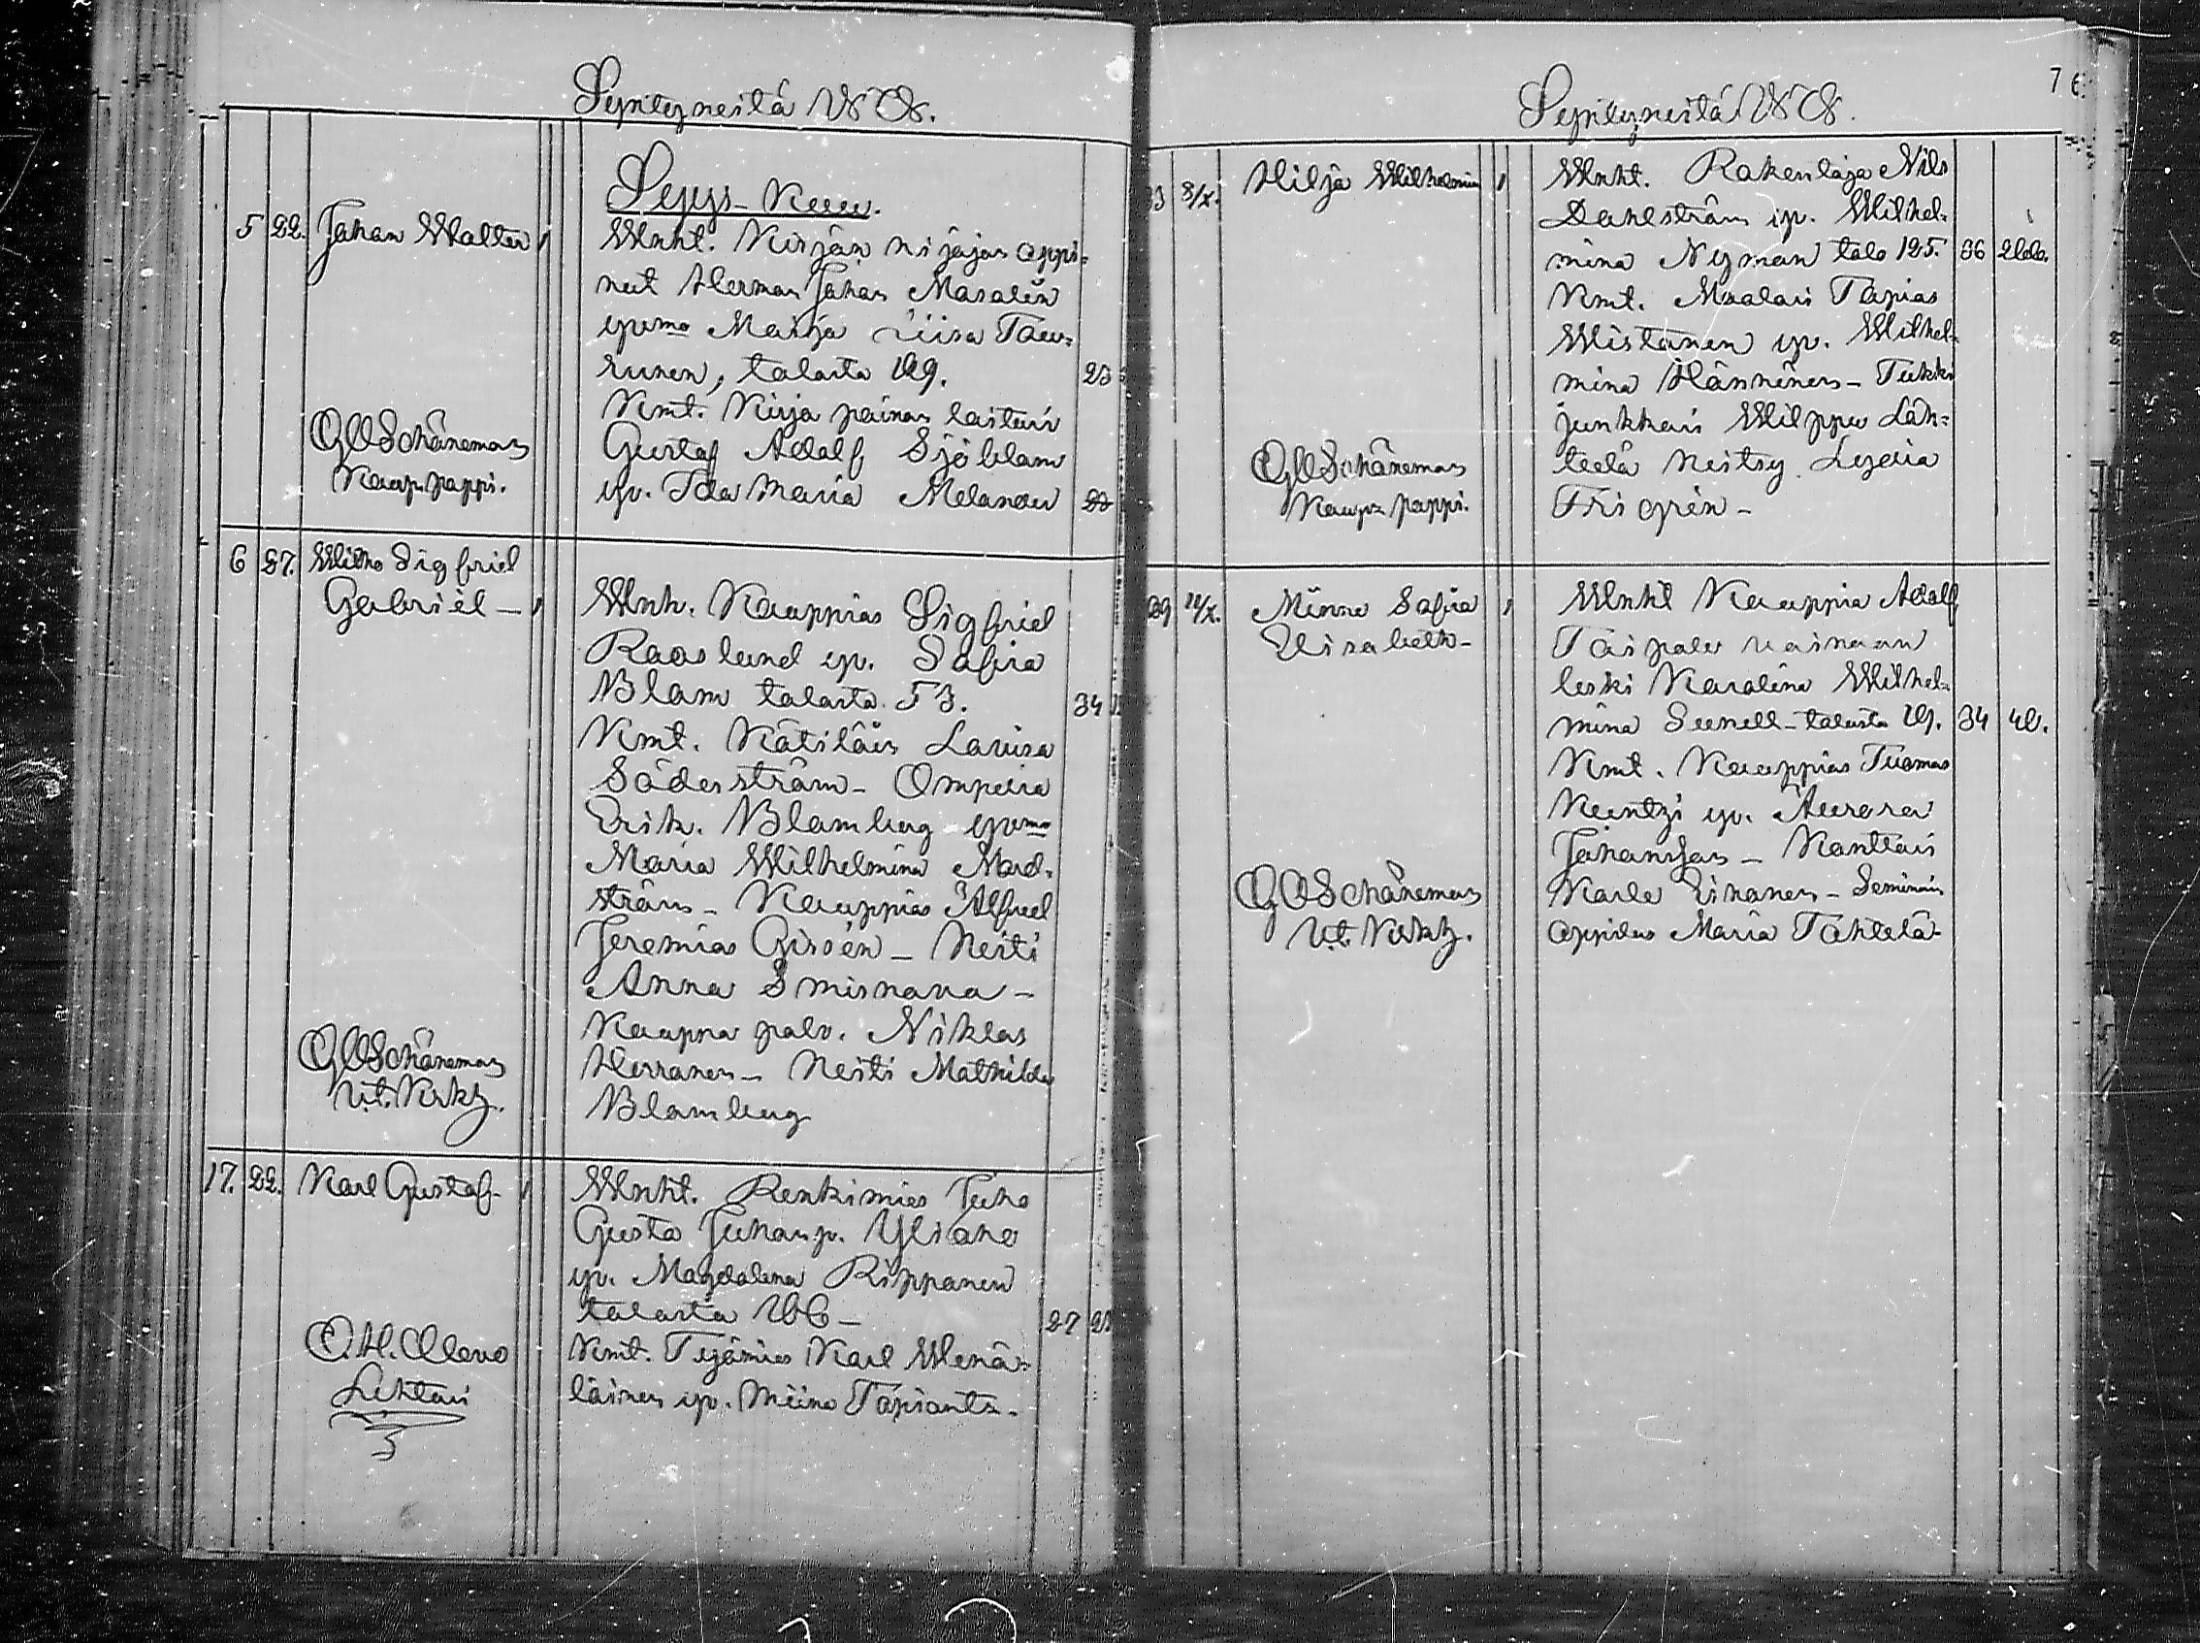 Syntyneitä 1878.
Syys-Kuu.
5 22. Johan Walter 1
Wnht. Kirjan nijojan oppi-
nut Herman Johan Masalin
ypvmo Marja Liisa Tau-
runen, talosta 119. 23
Kmt. Kirja painon laituri
Gustaf Adolf Sjöblom
yv. Ida Maria Melander 23
G O Schöneman
Kaup. pappi.
6 27. Wilho Sigfrid
Gabriel — 1
Wnh. Kauppias Sigfrid
Rooslund yv. Sofia
Blom talosta 53. 34
Kmt. Kätilöin Lovisa
Söderström - Ompelia
Erik. Blomberg ypvmo
Maria Wilhelmina Nord-
ström - Kauppias Alfred
Jeremias Girsén - Neiti
Anna Smirnova -
Kauppa palv. Niklas
Herranen - Neiti Mathilda
Blomberg
G O Schöneman
V.t. Kirkh.
17. 22. Karl Gustaf - 1
Wnht. Renkimies Juho
Gusta Juhanp. Yliaho
yv. Magdalena Rippanen
talosta 166 - 27
Kmt. Työmies Karl Wenä-
läinen yv. Miina Topiantr.
O. H. Olevo
Lehtori
76.
Syntyneitä 1878.
23 3/X. Hilja Wilhelmin 1
Wnht. Rakentaja Nils
Dahlström yv. Wilhel-
mina Nyman talo 125. 36
Kmt. Maalari Topias
Wistanen yv. Wilhel-
mina Hänninen - Tukki
junkkari Wilppu Läh-
teelä Neitsy Lydia
Frigrén -
G O Schöneman
Kaup. pappi.
29 11/X. Minna Sofia 1
Elisabeth -
Wnht Kauppia Adolf
Taipale vainaan
leski Karolina Wilhel-
mina Sunell - talosta 19. 34 40.
Kmt. Kauppias Tuomas
Kuntzi yv. Aurora
Johansson - Konttori
Karle Eihanen - Seminari
oppilas Maria Tähtelä -
G O Schöneman
V.t. Kirkh.